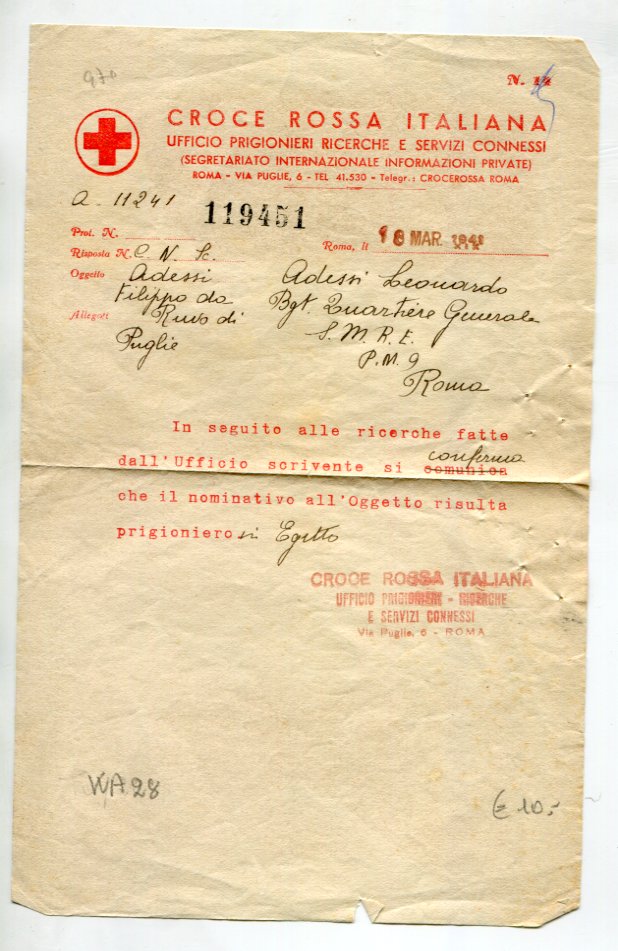 970
N.
CROCE ROSSA ITALIANA
UFFICIO PRIGIONIERI RICERCHE E SERVIZI CONNESSI
(SEGRETARIATO INTERNAZIONALE INFORMAZIONI PRIVATE)
ROMA - VIA PUGLIE, 6 - TEL 41.530 - Telegr.: CROCEROSSA ROMA
A - 11241
119451
Prot. N.
Roma, lì 18 MAR. 1941
Risposta N.
Oggetto Adessi
Filippo da
Allegati Ruvo di
Puglie
Adessi Leonardo
Bgt. Quartiere Generale
S. M. R. E.
P.M. 9
Roma
In seguito alle ricerche fatte
conferma
dall'Ufficio scrivente si comunica
che il nominativo all'Oggetto risulta
prigioniero in Egitto
CROCE ROSSA ITALIANA
UFFICIO PRIGIONIERI - RICERCHE
E SERVIZI CONNESSI
Via Puglie, 6 - ROMA
WA28
€ 10.-